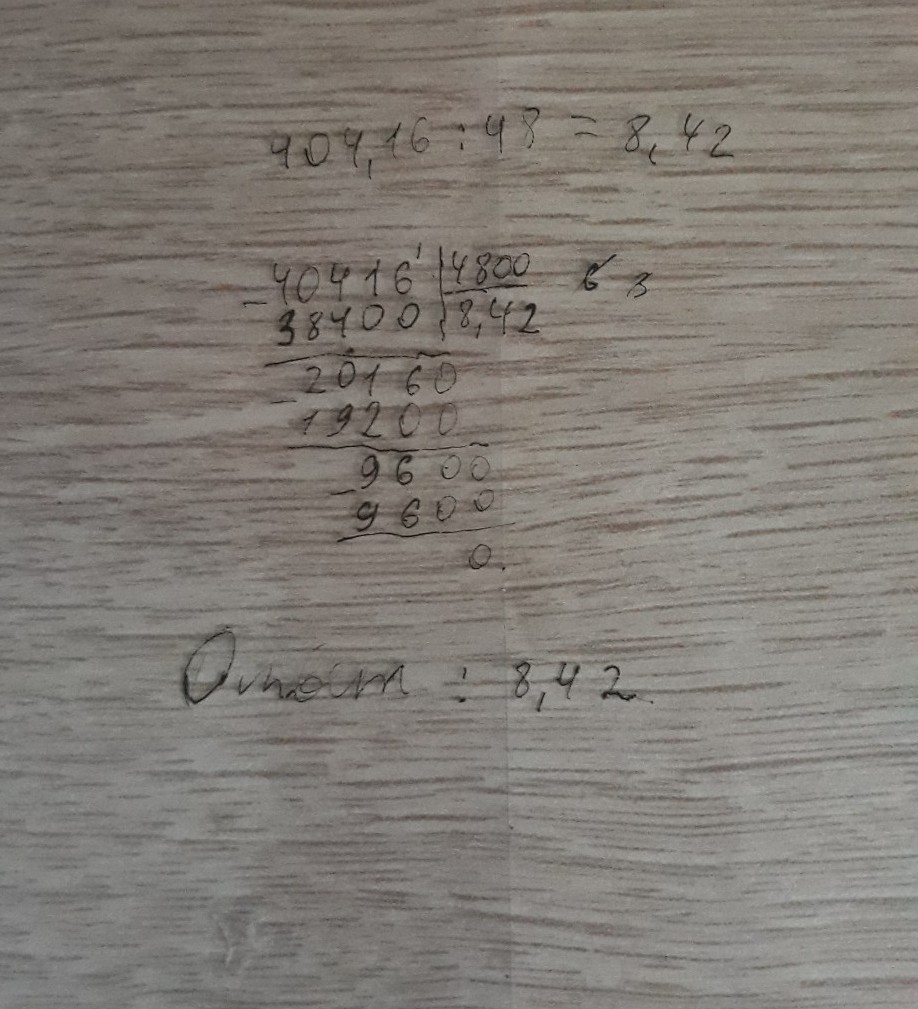 404,16 : 48 = 8,42
40416' 4800
- 38400 8,42
20160
- 19200
9600
- 9600
0.
Ответ : 8,42.